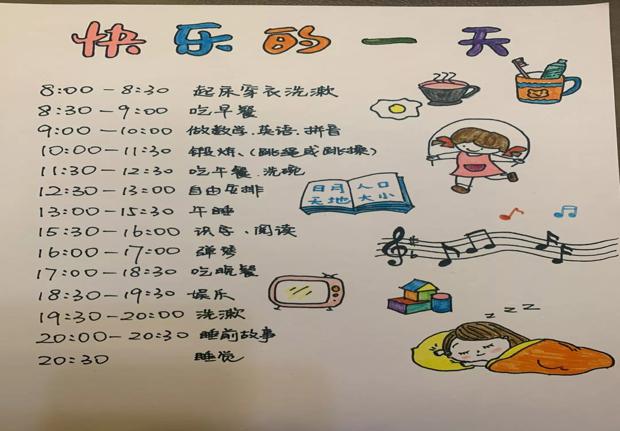 快乐的一天
8:00-8:30 起床穿衣洗漱
8:30-9:00 吃早餐
9:00-10:00 做数学、英语、拼音
10:00-11:30 锻炼、(跳绳或跳操)
11:30-12:30 吃午餐、洗碗
12:30-13:00 自由安排
13:00-15:30 午睡
15:30-16:00 识字、阅读
16:00-17:00 弹琴
17:00-18:30 吃晚餐
18:30-19:30 娱乐
19:30-20:00 洗漱
20:00-20:30 睡前故事
20:30 睡觉
日月人口
天地大小
z z z